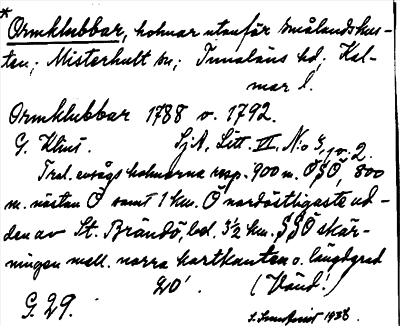 * Ormklubbar, holmar utanför Smålandskus-
ten; Misterhult sn; Tunaläns hd, Kal-
mar l.
Ormklubbar 1788 o. 1792.
G. Klint. SjA, Litt. II, No 3, jo. 2.
Tral. holmarna resp. 900 m. ÖSÖ, 800
m. nästan Ö samt 1 km. Ö nordöstligaste ud-
den av St. Brändö, bel. 3½ km. SSÖ skär-
ningen mell. norra kartkanten o. längdgrad
G. 29. 20'. (Vänd!)
1938.